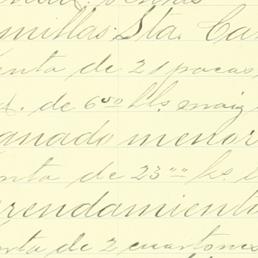 millas Sta. Ca
enta de 21 pacas,
d. de 650 lbs. maiz
anado menor
nta de 2300 lbs.
rrendamiento
nta de 2 cuartones